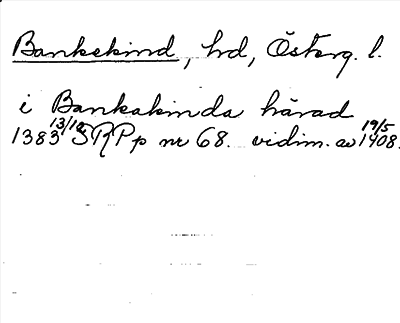 Bankekind, hd, Österg. l.
i Bankakinda härad
1383 13/12 SRPp nr 68. vidim. av 19/5 1408.